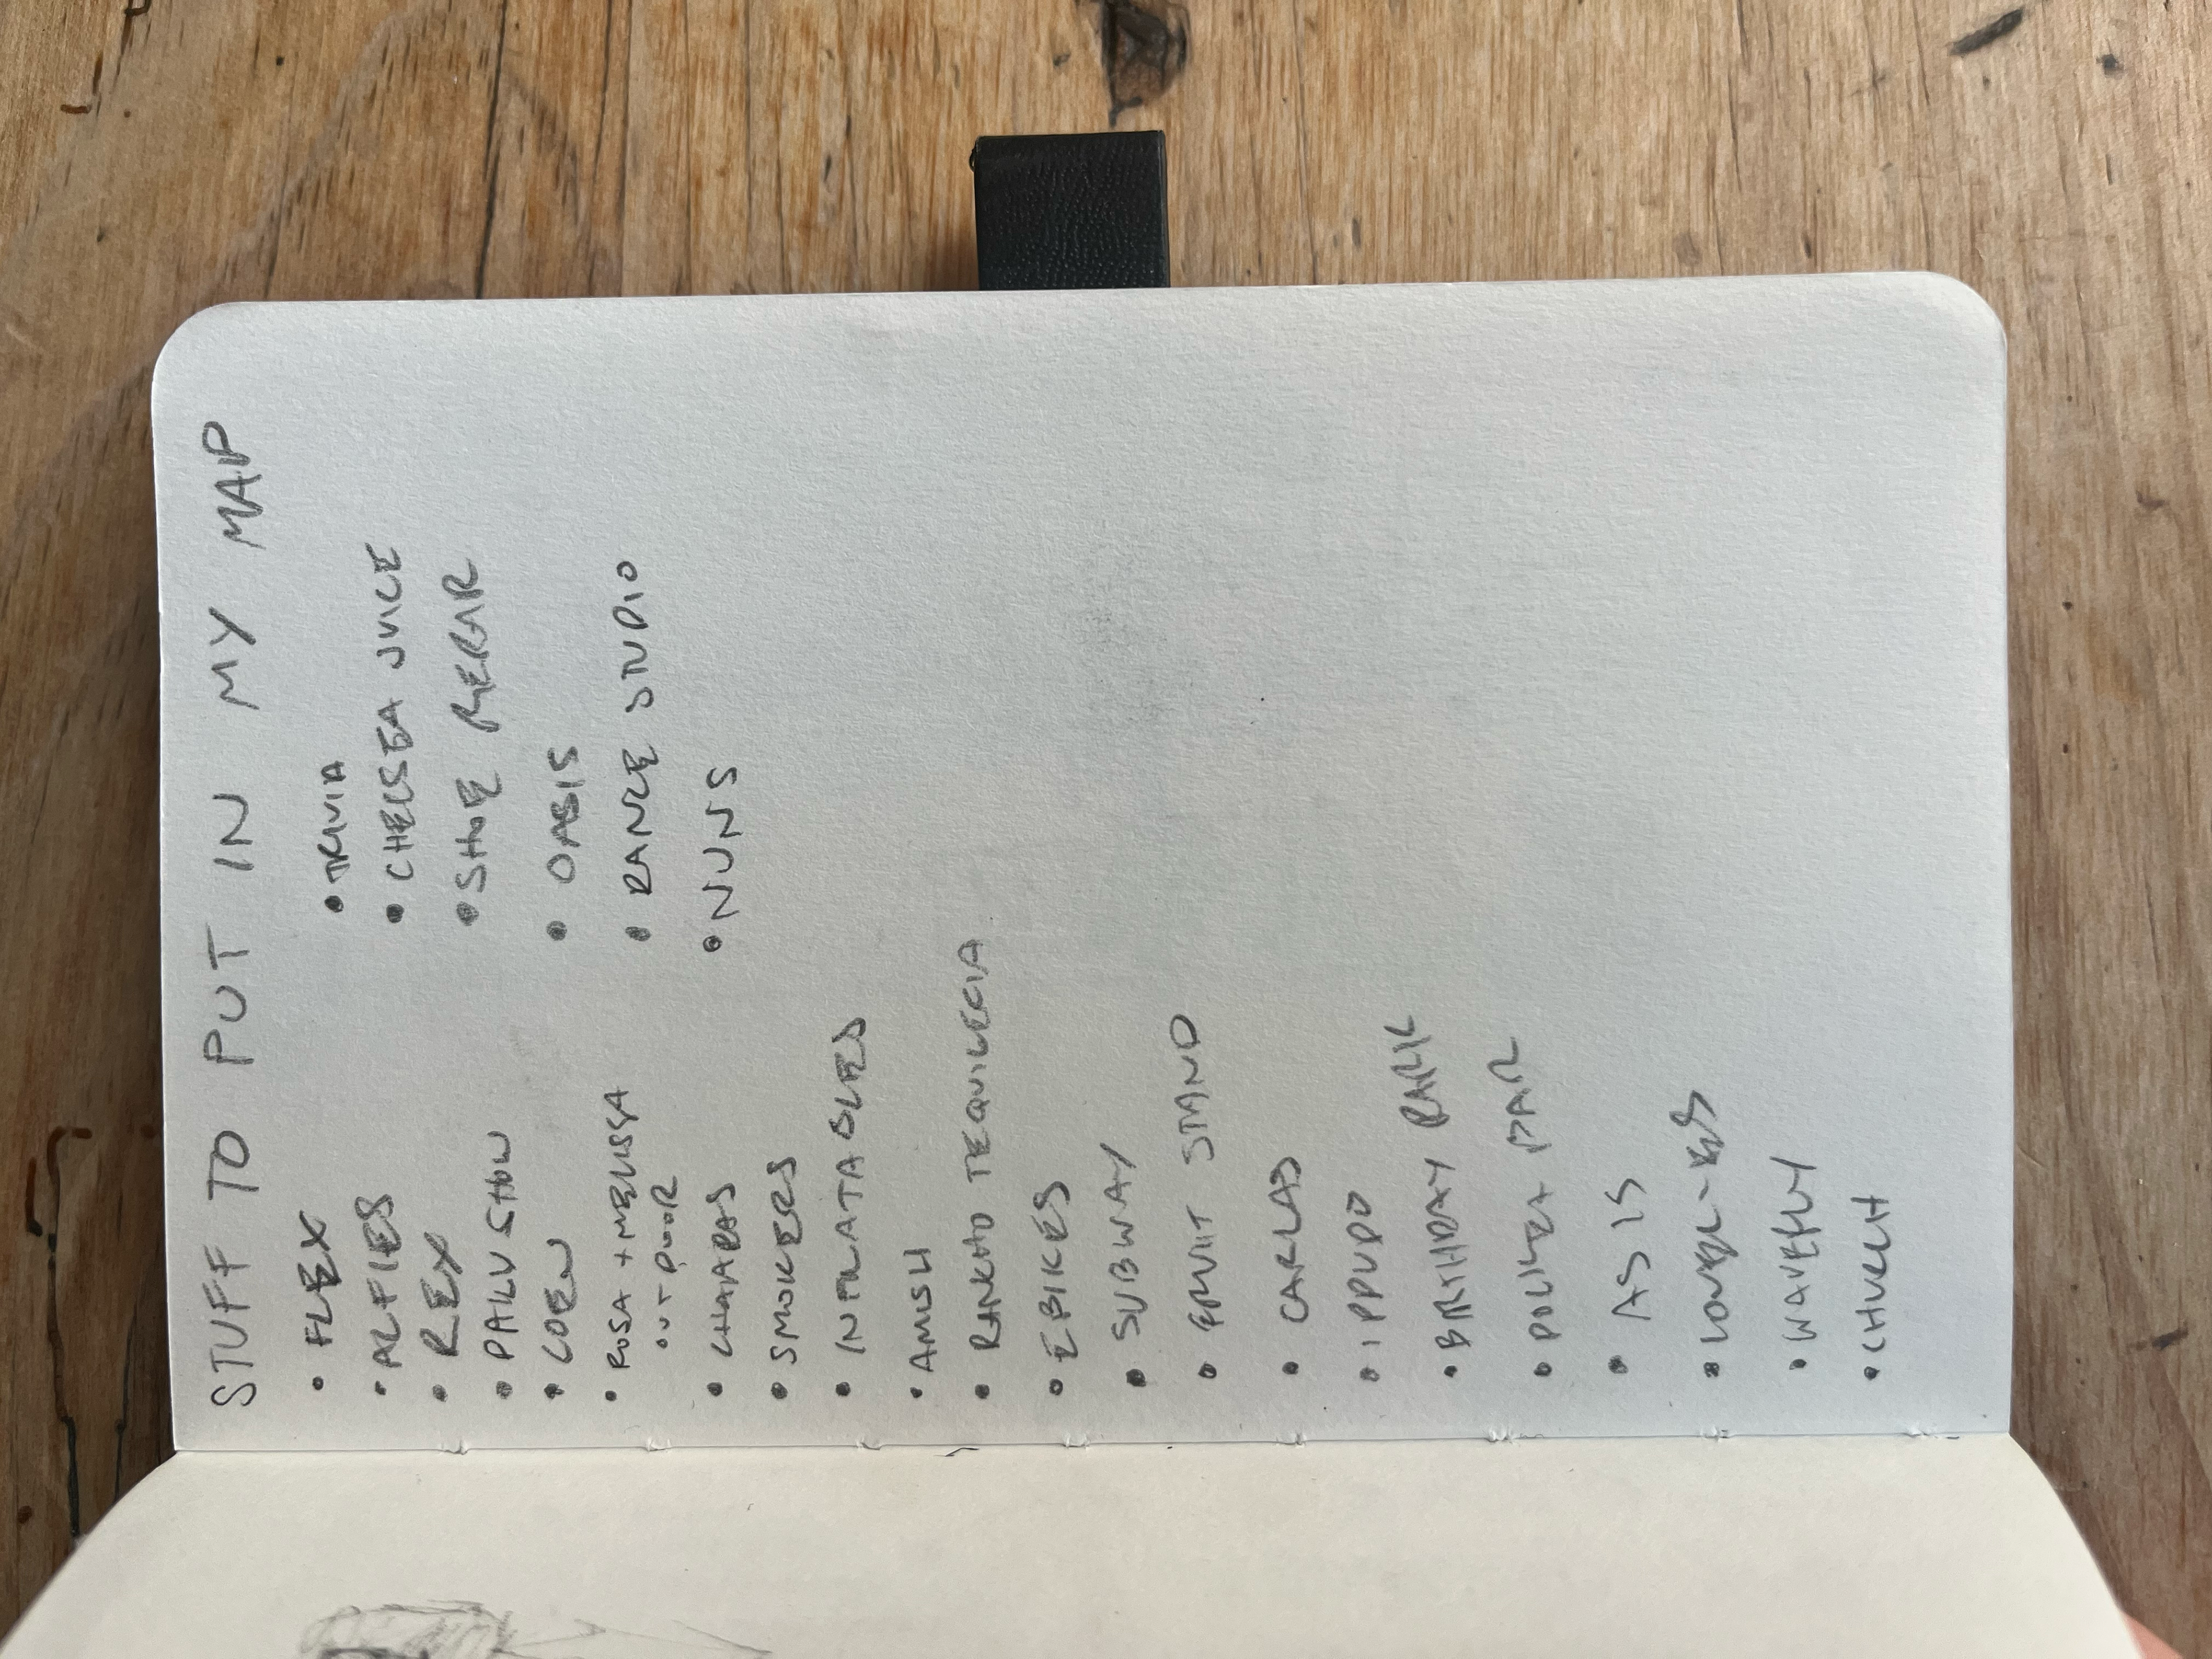 STUFF TO PUT IN MY MAP
• FLEX
• ALFIES
• REX
• COEN
• ROSA + MELISSA
OUT DOOR
• CHAAPAS
• SMOKERS
• INFLATABLES
• AMISH
• RANCHO TEQUILERIA
• EBIKES
• SUBWAY
• FRUIT STAND
• CARLAS
• IPPUDO
• BIRTHDAY PARK
• AS IS
• WAVERLY
• CHURCH
• TRIVIA
• CHELSEA JUICE
• SHOE REPAIR
• OASIS
• DANCE STUDIO
• NUNS